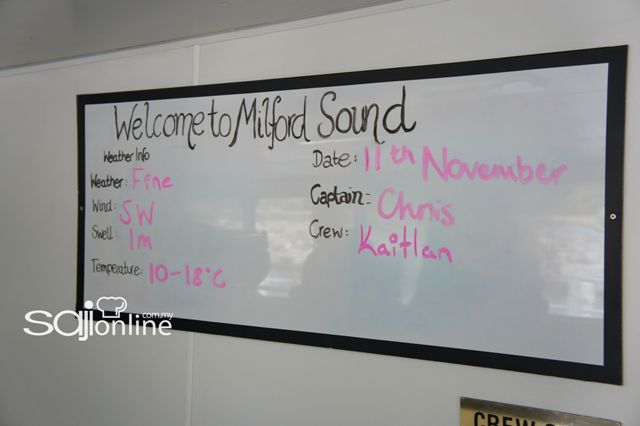 Welcome to Milford Sound
Weather Info
Weather: Fine
Wind: SW
Swell: 1m
Temperature: 10-18°C
Date: 11th November
Captain: Chris
Crew: Kaitlan
sajionline
.com.my